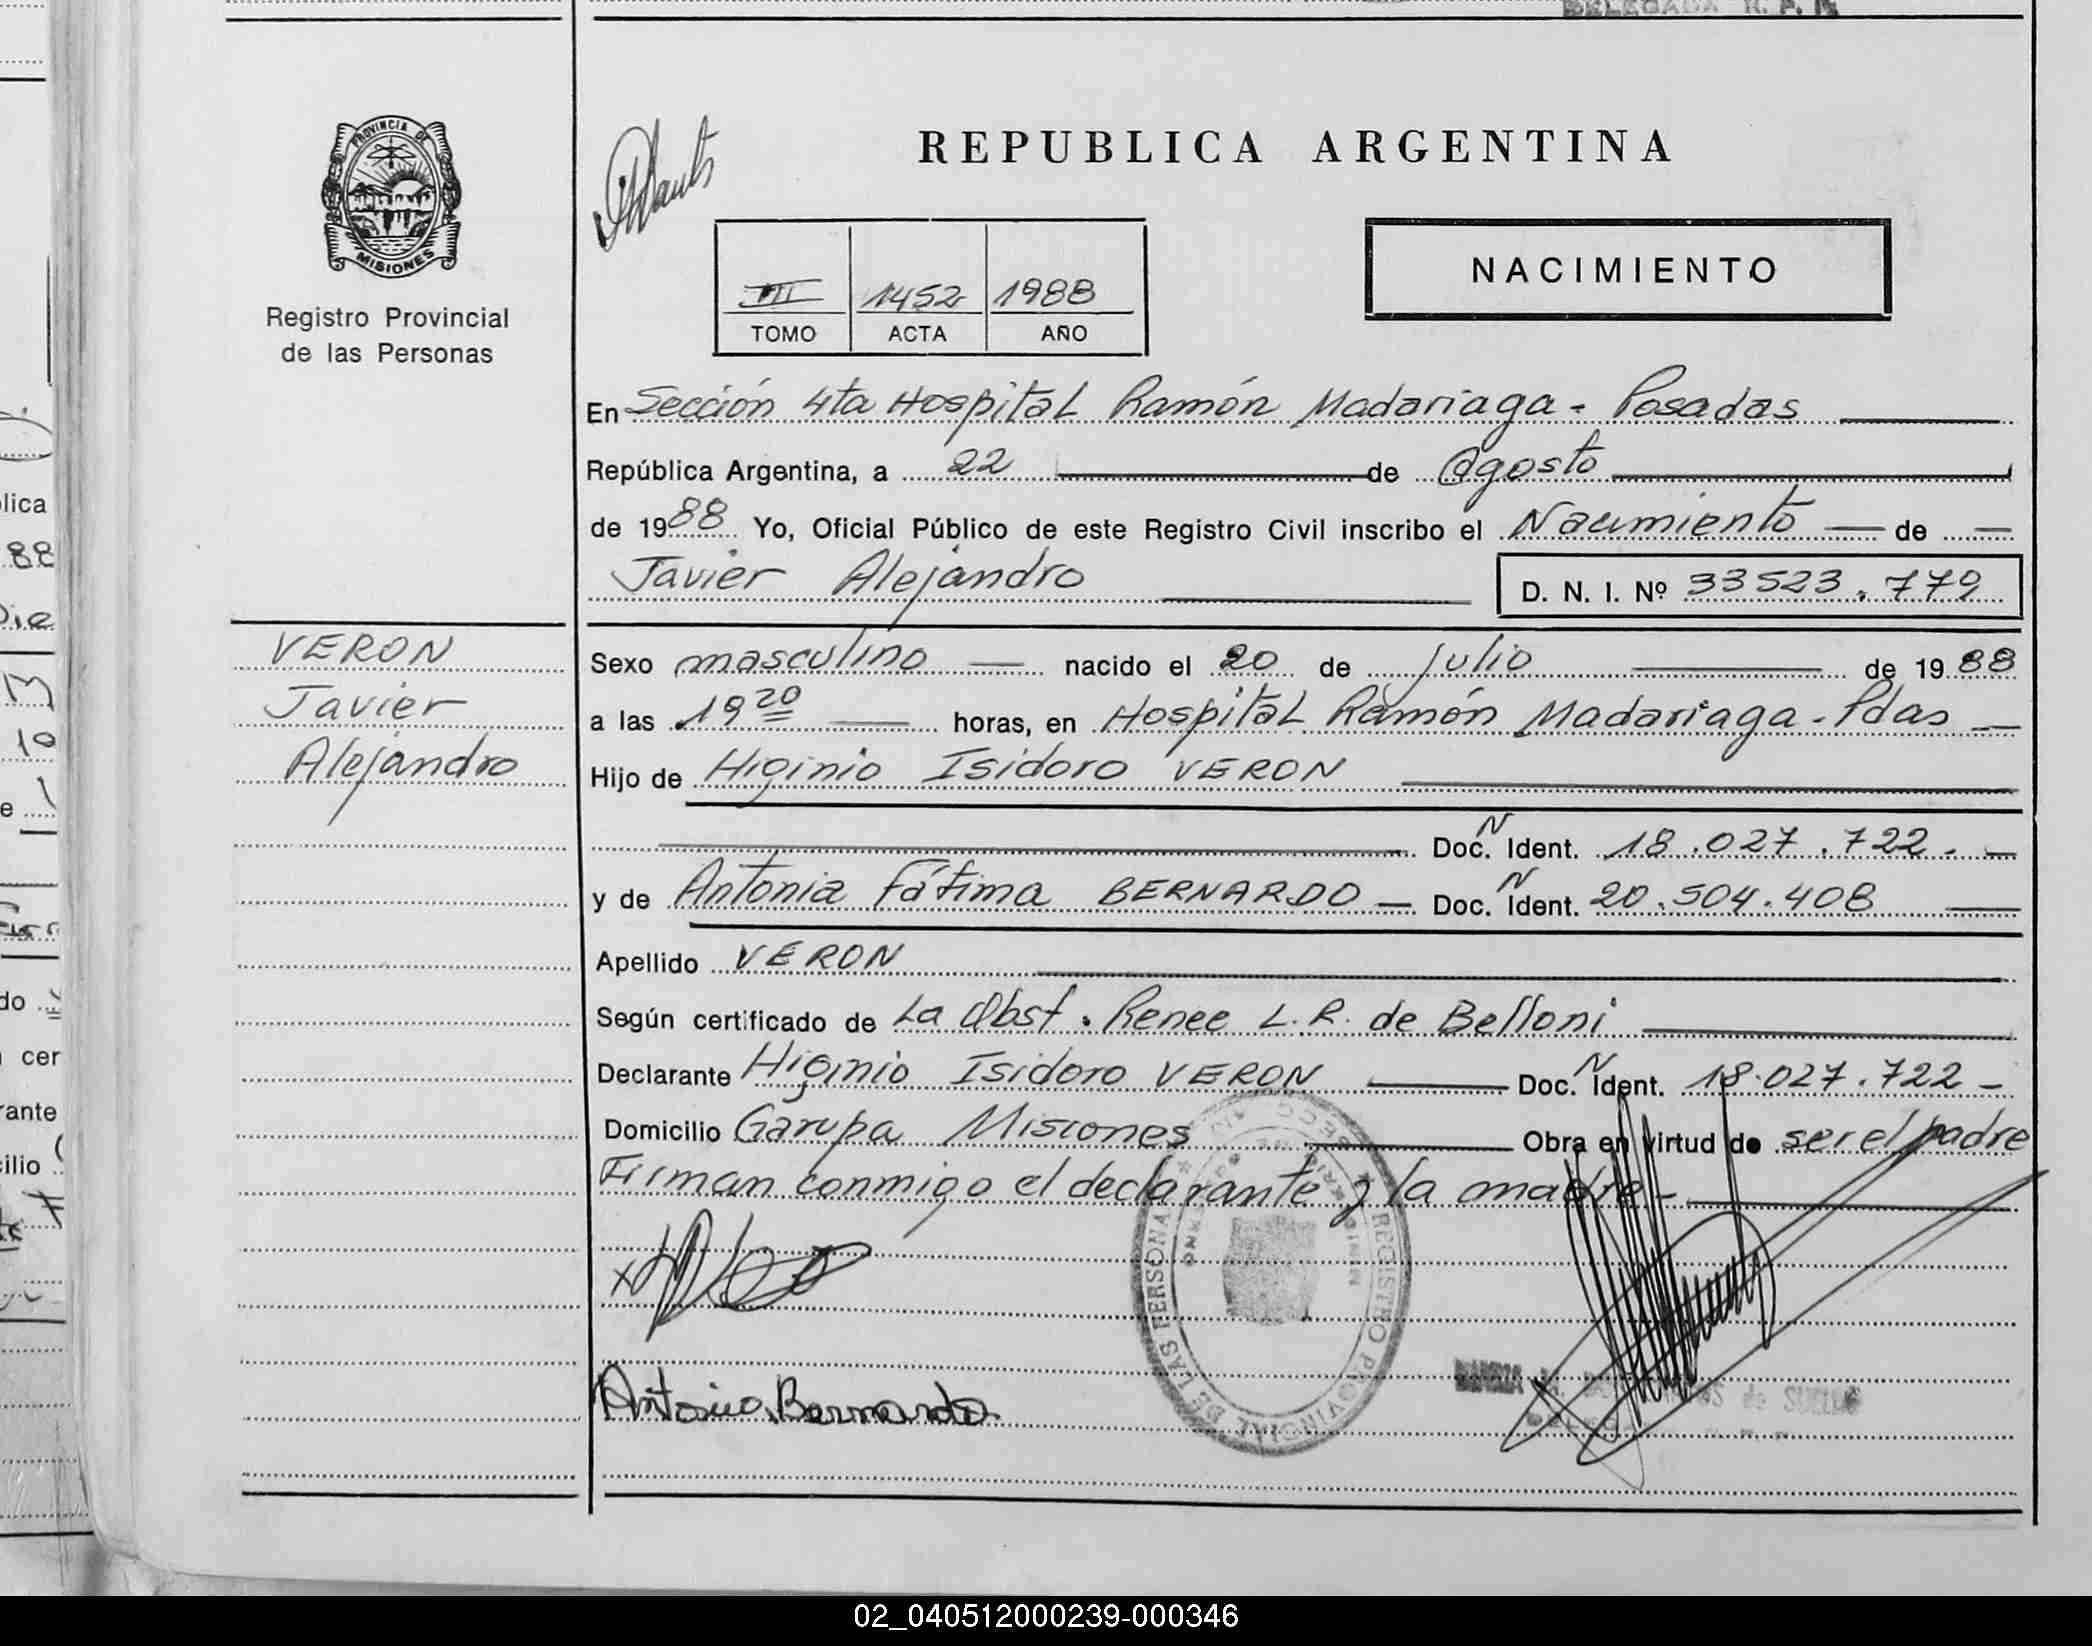 DELEGADA R. P.
PROVINCIA DE
MISIONES
Registro Provincial
de las Personas
REPUBLICA ARGENTINA
NACIMIENTO
III 1452 1988
TOMO ACTA AÑO
En Sección 4ta Hospital Ramón Madariaga - Posadas
República Argentina, a 22 de Agosto
de 1988 Yo, Oficial Público de este Registro Civil inscribo el Nacimiento de
Javier Alejandro D. N. I. Nº 33523.779
VERON
Javier
Alejandro
Sexo masculino nacido el 20 de Julio de 1988
a las 19 20 horas, en Hospital Ramón Madariaga - Pdas
Hijo de Higinio Isidoro VERON
Doc. N Ident. 18.027.722.
y de Antonia Fátima BERNARDO Doc. N Ident. 20.504.408
Apellido VERON
Según certificado de La Obst. Renee L. R. de Belloni
Declarante Higinio Isidoro VERON Doc. N Ident. 18.027.722
Domicilio Garupa Misiones Obra en virtud de ser el padre
Firman conmigo el declarante y la madre
REGISTRO PROVINCIAL DE LAS PERSONAS
Bernardo
lica
88
10
e
do
cer
rante
ilio
02_040512000239-000346